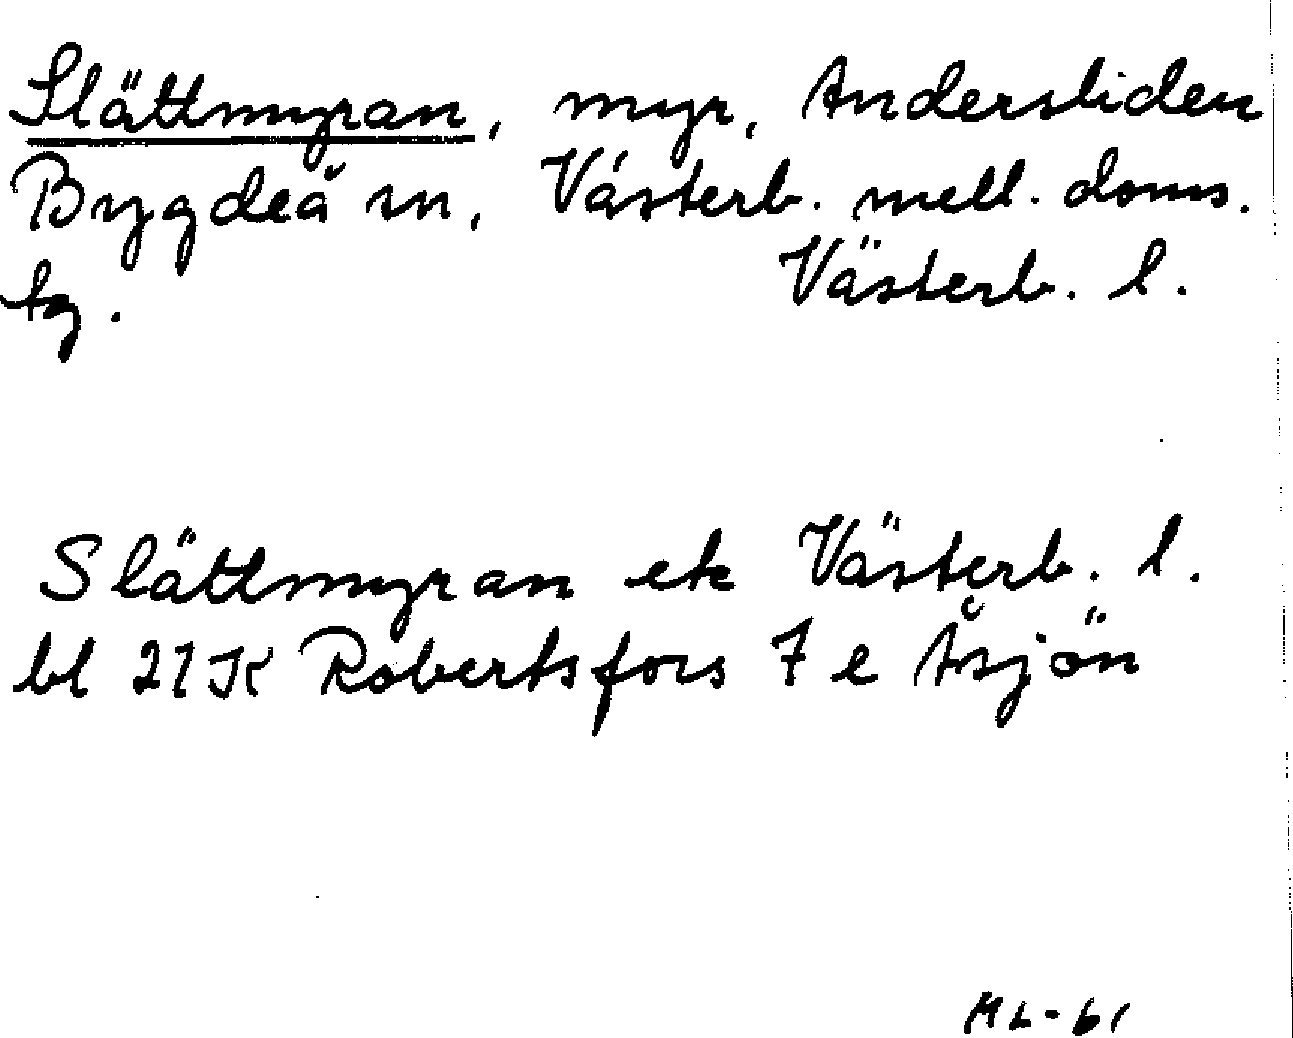 Slättmyran, myr, Andersliden
Bygdeå sn, Västerb. mell. doms.
Västerb. l.
Slättmyran ek Västerb. l.
bl 21K Robertsfors 7 e Åsjön
ML-61